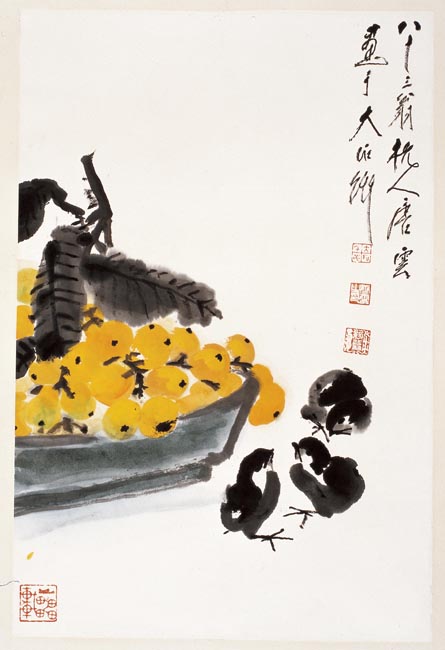 八十三翁杭人唐雲
畫于大石齋